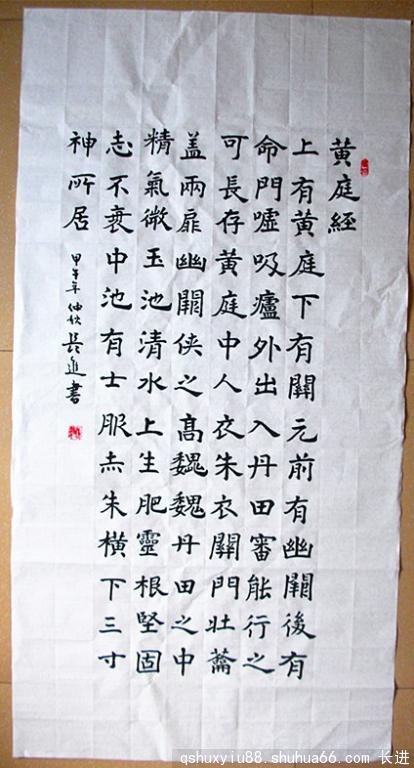 黄庭經
上有黄庭下有關元前有幽闕後有
命門噓吸廬外出入丹田審能行之
可長存黄庭中人衣朱衣關門壮籥
盖兩扉幽關俠之高魏魏丹田之中
精氣微玉池清水上生肥靈根堅固
志不衰中池有士服赤朱横下三寸
神所居
甲午年仲秋長進書
qshuxyiu88.shuhua66.com 长进